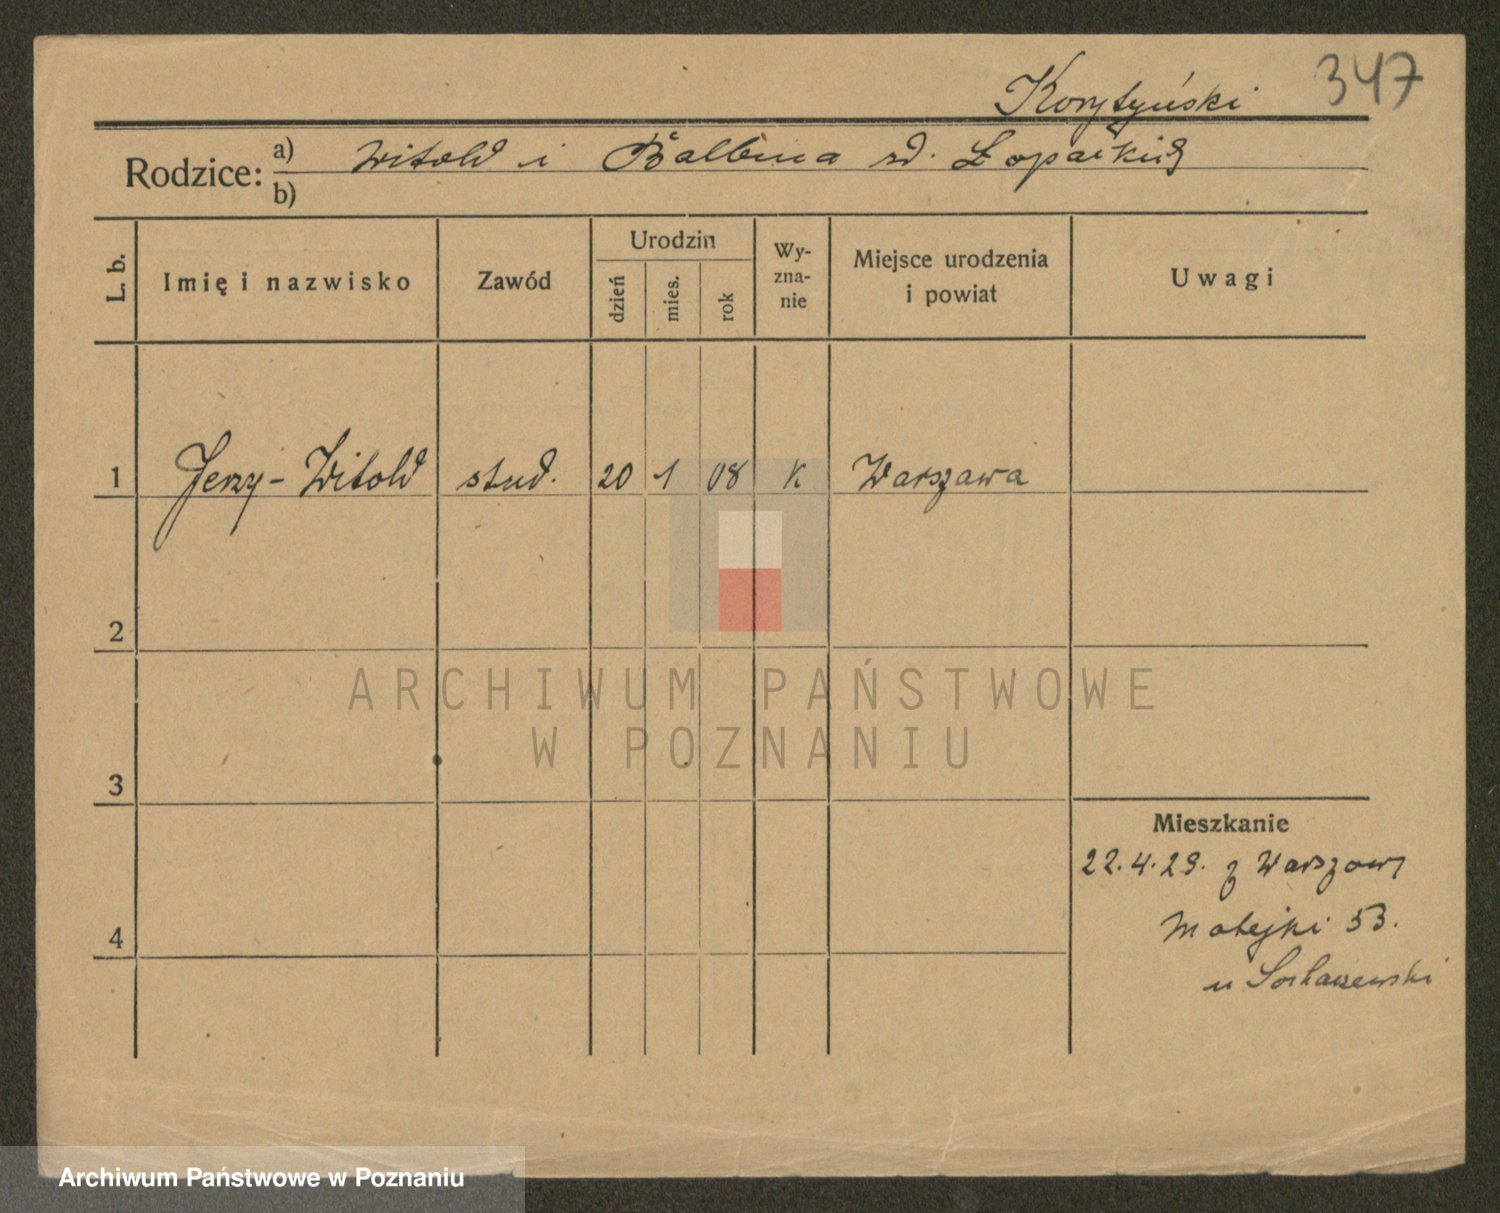 Korytyński 347
Rodzice: a) Witold i Balbina zd.
b)
L. b. Imię i nazwisko Zawód Urodzin dzień mies. rok Wyznanie Miejsce urodzenia i powiat Uwagi
1 Jerzy-Witold stud. 20 1 08 k Warszawa
2
ARCHIWUM PAŃSTWOWE
W POZNANIU
3
Mieszkanie
22.4.29. z Warszawy
4 Matejki 53.
u Sochaczewski
Archiwum Państwowe w Poznaniu